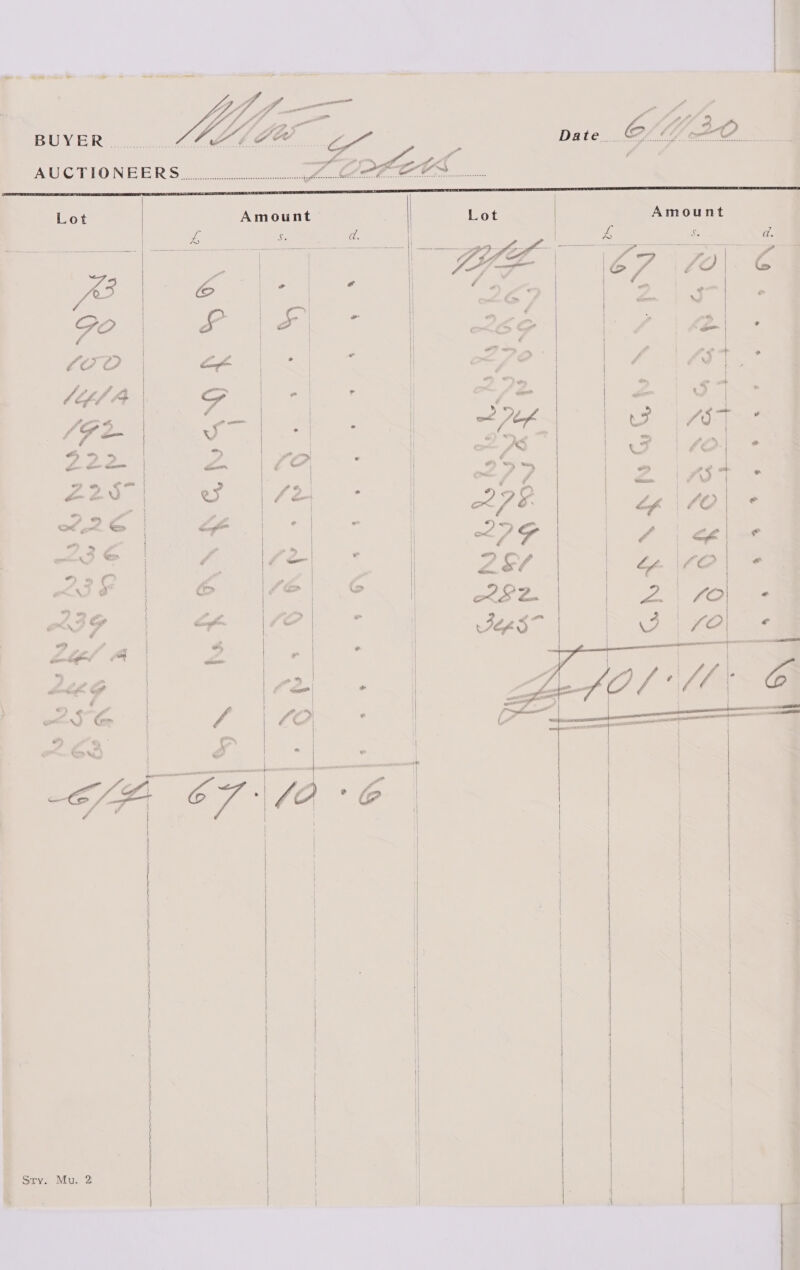 BUYER Date 6/11/30
AUCTIONEERS Fosters
Lot Amount Lot Amount
£ s. d. £ s. d.
B/F 67 10 6
73 6 - - 267 2 5 -
90 8 8 - 269 1 12 -
100 4 - - 270 1 15 -
141A 9 - - 272 2 5 -
192 5 - - 274 3 15 -
222 2 10 - 276 3 10 -
225 3 12 - 277 2 15 -
226 4 - - 278 4 10 -
236 1 12 - 279 1 4 -
238 6 16 6 281 4 10 -
239 4 10 - 282 2 10 -
241 A 2 - - 345 3 10 -
249 12 - £101 - 11 - 6
256 1 10 -
263 8 - -
C/F 67 - 10 - 6
Sty. Mu. 2